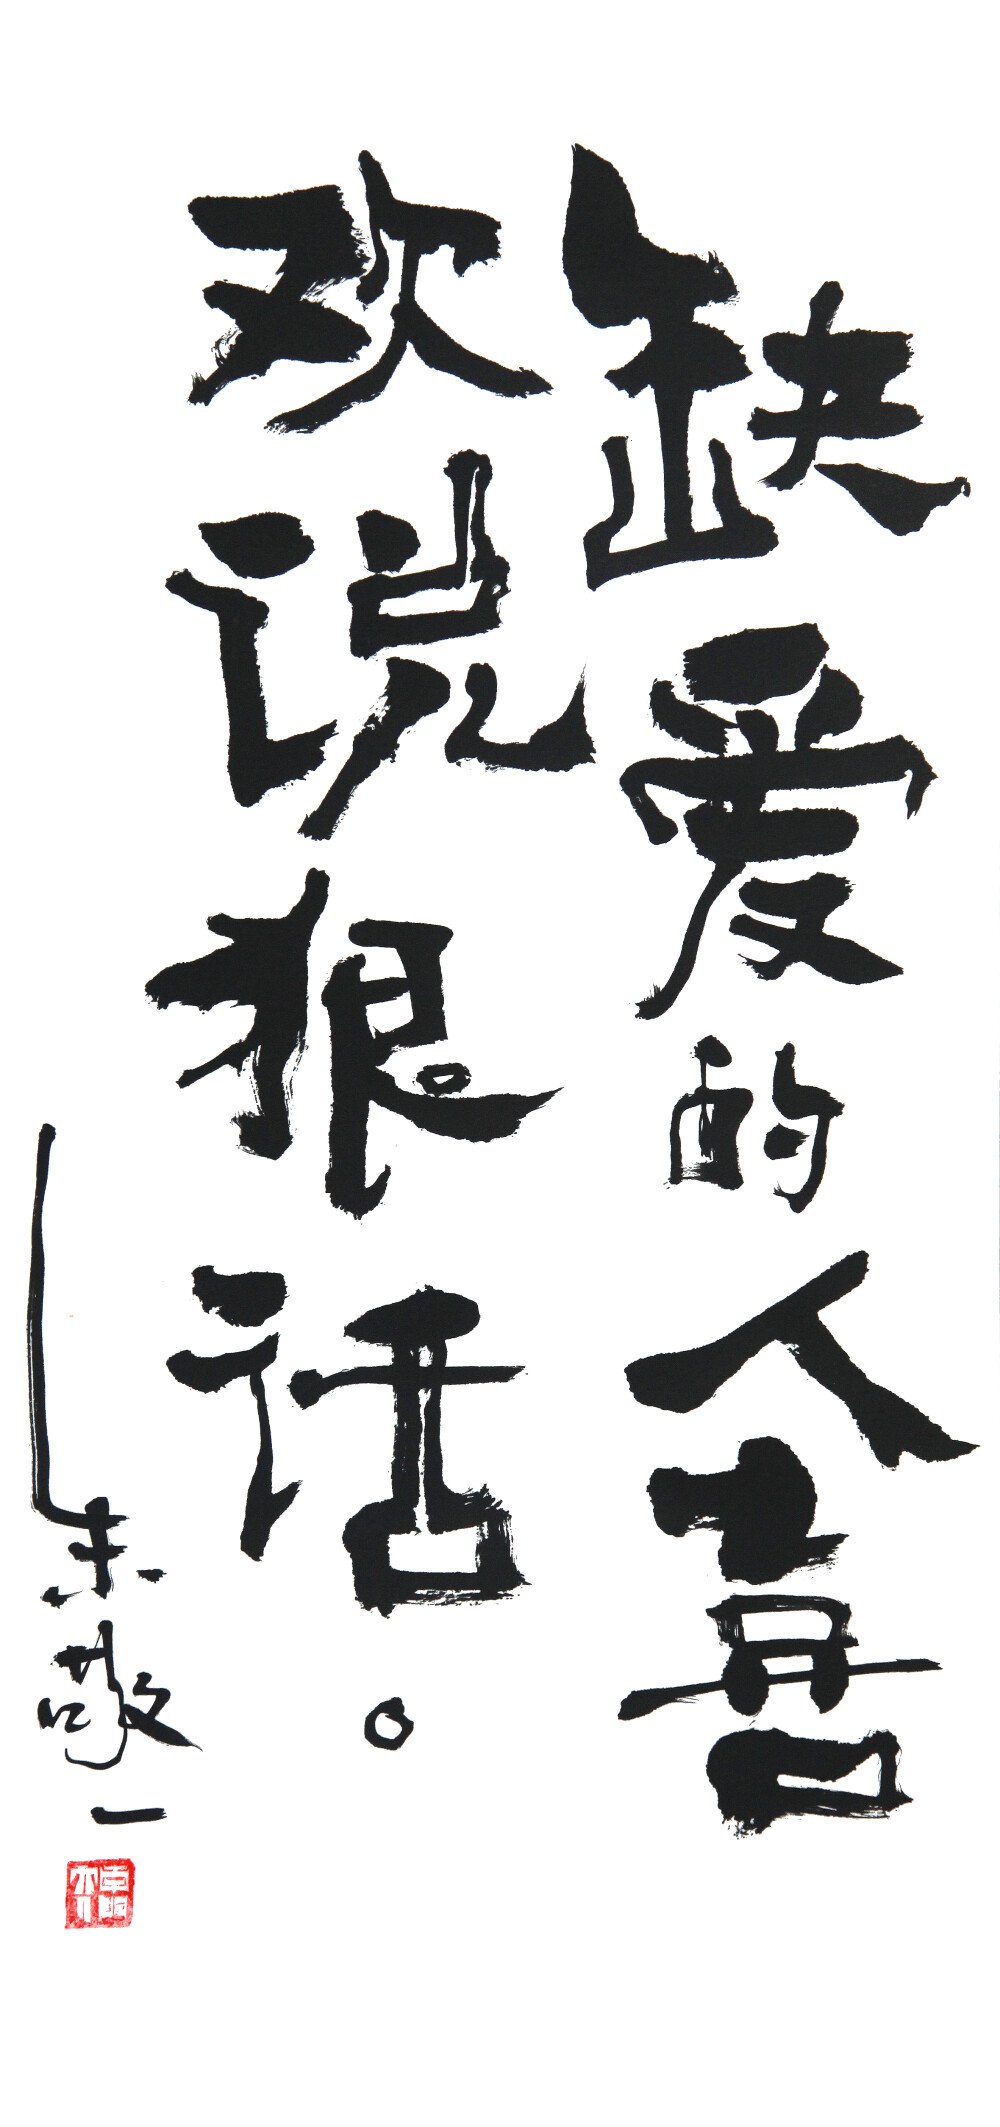 缺爱的人喜
欢说狠话。
朱敬一